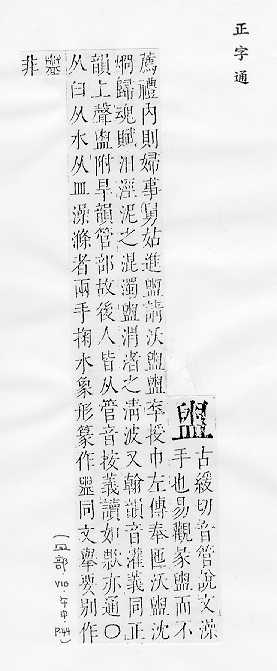 正字通
盥
古緩切音管說文澡
手也易觀彖盥而不
薦禮內則婦事舅姑進盥請沃盥盥卒授巾左傳奉匜沃盥沈
烱歸魂賦汨涇泥之混濁盥渭渚之清波又翰韻音灌義同正
韻上聲盥附旱韻管部故後人皆从管音按義讀如欵亦通〇
从臼从水从皿澡滌者兩手掬水象形篆作同文舉要別作
非
(皿部 V10 午中 P44)